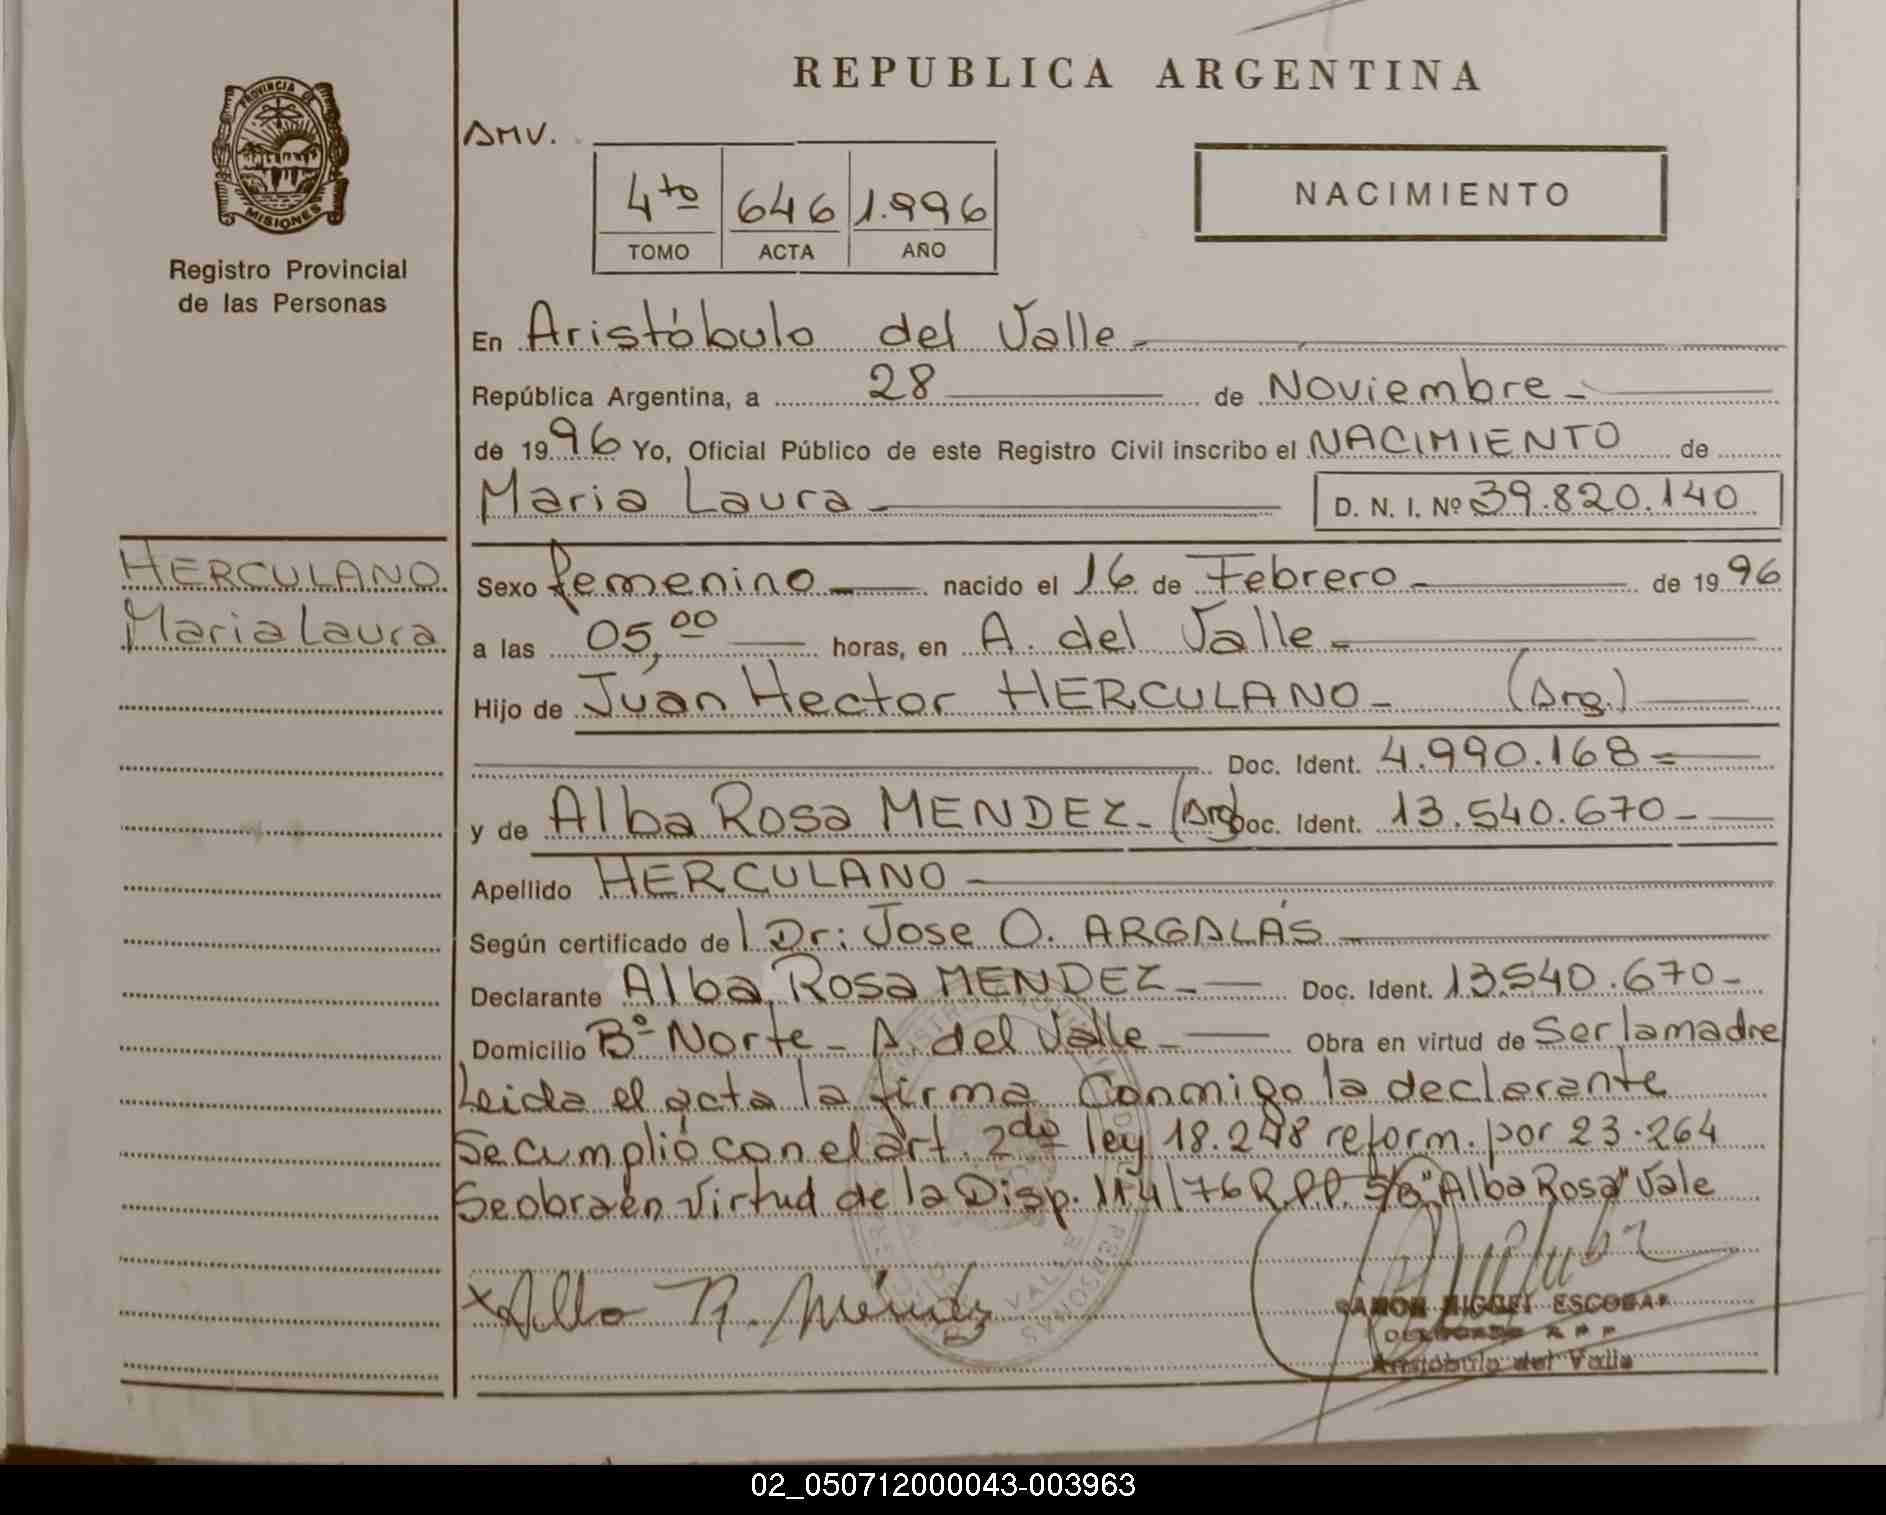 REPUBLICA ARGENTINA
PROVINCIA DE
MISIONES
Registro Provincial
de las Personas
AMV.
4to 646 1.996
TOMO ACTA AÑO
NACIMIENTO
En Aristóbulo del Valle
República Argentina, a 28 de Noviembre
de 1996 Yo, Oficial Público de este Registro Civil inscribo el NACIMIENTO de
Maria Laura D. N. I. Nº 39.820.140
HERCULANO
Maria Laura
Sexo femenino nacido el 16 de Febrero de 1996
a las 05,00 horas, en A. del Valle
Hijo de Juan Hector HERCULANO (Arg.)
Doc. Ident. 4.990.168
y de Alba Rosa MENDEZ (Arg) Doc. Ident. 13.540.670
Apellido HERCULANO
Según certificado de Dr: Jose O. ARGALÁS
Declarante Alba Rosa MENDEZ Doc. Ident. 13.540.670
Domicilio Bº Norte - A. del Valle Obra en virtud de Ser la madre
Leida el acta la firma Conmigo la declarante
Se cumplió con el art. 2do ley 18.248 reform. por 23.264
Se obra en Virtud de la Disp. 114/76 R.P.P. S/B "Alba Rosa" Vale
x Alba R. Méndez
RAMON MIGUEL ESCOBAR
DELEGADO R P P
Aristóbulo del Valle
02_050712000043-003963